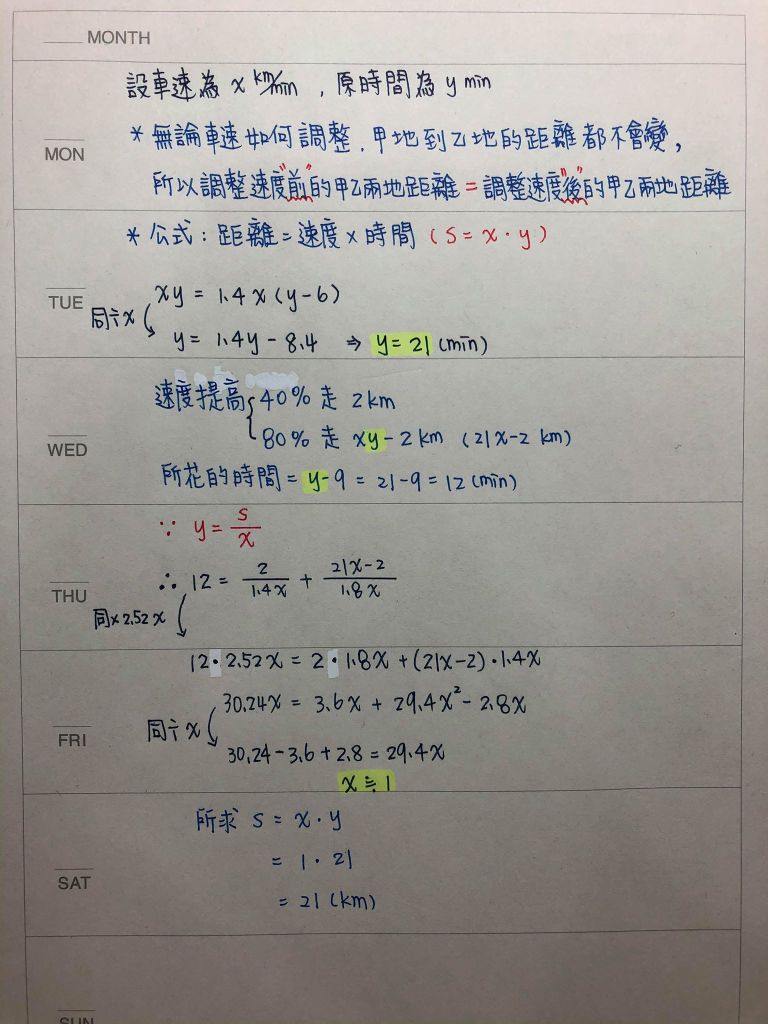 MONTH
設車速為 x km/min , 原時間為 y min
MON
* 無論車速如何調整 , 甲地到乙地的距離都不會變 ,
所以調整速度"前"的甲乙兩地距離 = 調整速度"後"的甲乙兩地距離
* 公式 : 距離 = 速度 × 時間 ( S = x · y )
TUE
xy = 1.4 x ( y - 6 )
同÷x
y = 1.4y - 8.4 ⇒ y = 21 (min)
WED
速度提高 { 40% 走 2 km
80% 走 xy - 2 km (21x - 2 km)
所花的時間 = y - 9 = 21 - 9 = 12 (min)
THU
∵ y = S/x
∴ 12 = 2/1.4x + 21x-2/1.8x
同×2.52x
12 · 2.52x = 2 · 1.8x + (21x-2) · 1.4x
FRI
30.24x = 3.6x + 29.4x² - 2.8x
同÷x
30.24 - 3.6 + 2.8 = 29.4x
x ≒ 1
SAT
所求 S = x · y
= 1 · 21
= 21 (km)
SUN